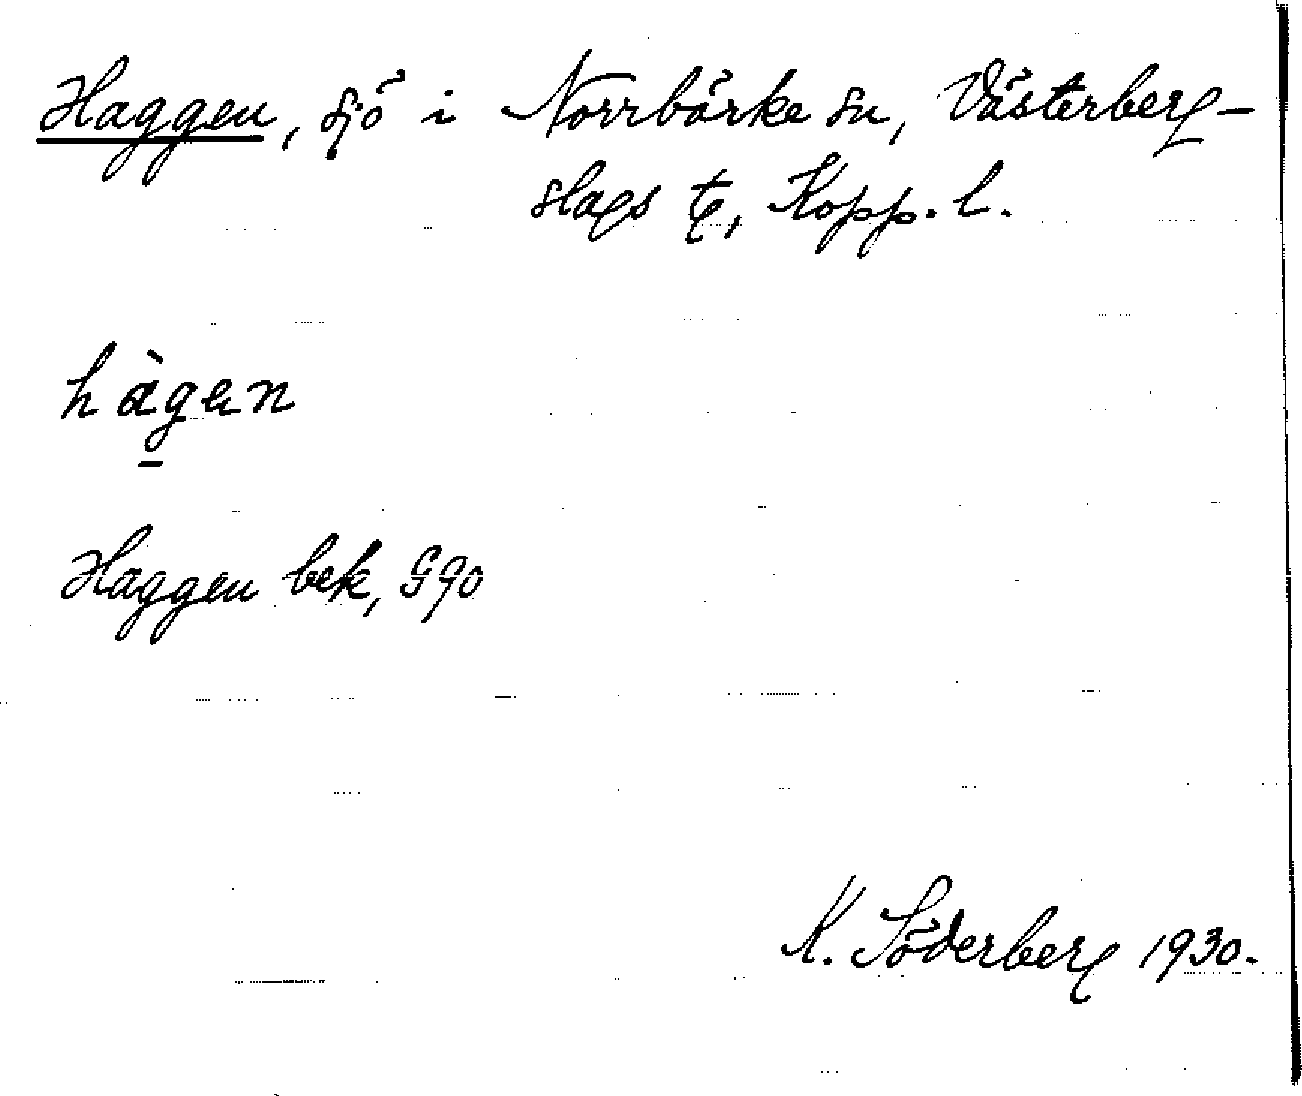 Haggen, sjö i Norrbärke sn, Västerberg-
slags tg, Kopp. l.
hàgen
Haggen bek, G90
K. Söderberg 1930.